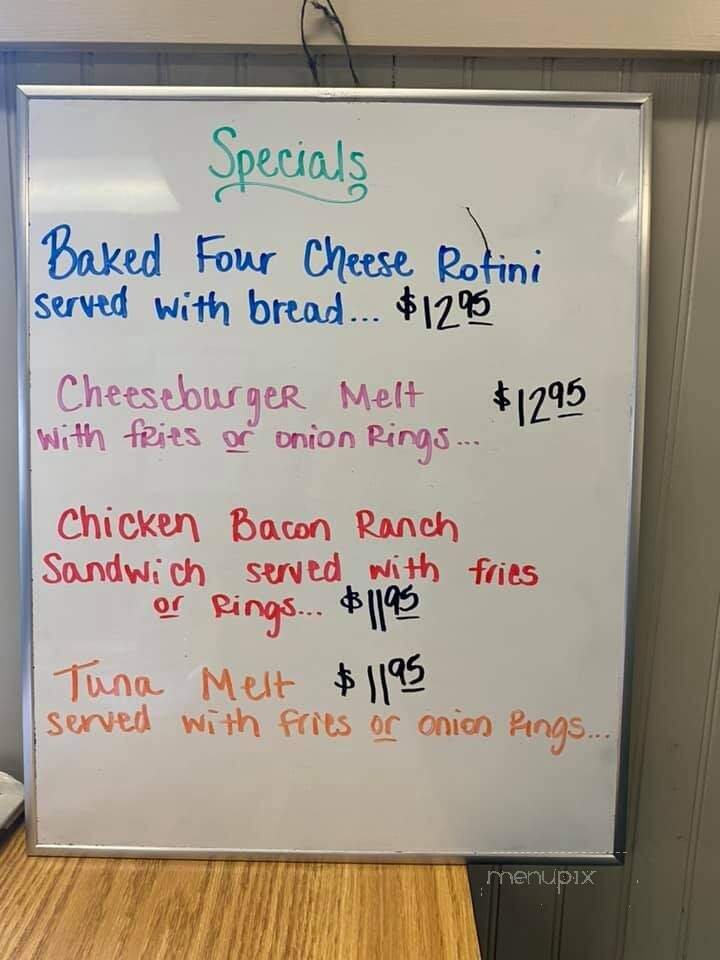 Specials
Baked Four Cheese Rotini
served with bread... $12 95
Cheeseburger Melt $12 95
with fries or onion Rings...
Chicken Bacon Ranch
Sandwich served with fries
or Rings... $11 95
Tuna Melt $11 95
served with fries or onion Rings...
menupix